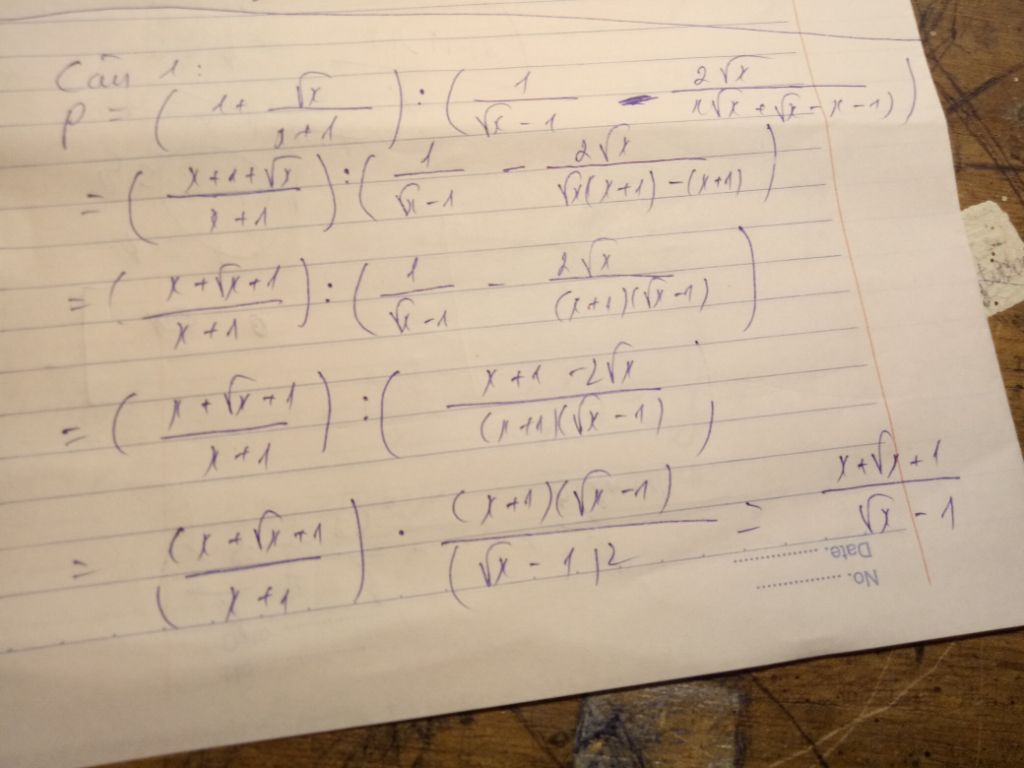 Câu 1:
P = ( 1 + √x / x + 1 ) : ( 1 / √x - 1 - 2√x / x√x + √x - x - 1) )
= ( x + 1 + √x / x + 1 ) : ( 1 / √x - 1 - 2√x / √x(x+1) - (x+1) )
= ( x + √x + 1 / x + 1 ) : ( 1 / √x - 1 - 2√x / (x+1)(√x - 1) )
= ( x + √x + 1 / x + 1 ) : ( x + 1 - 2√x / (x+1)(√x - 1) )
= ( (x + √x + 1 / x + 1 ) . (x+1)(√x - 1) / (√x - 1)2 = x + √x + 1 / √x - 1
No. ..........
Date. ..........